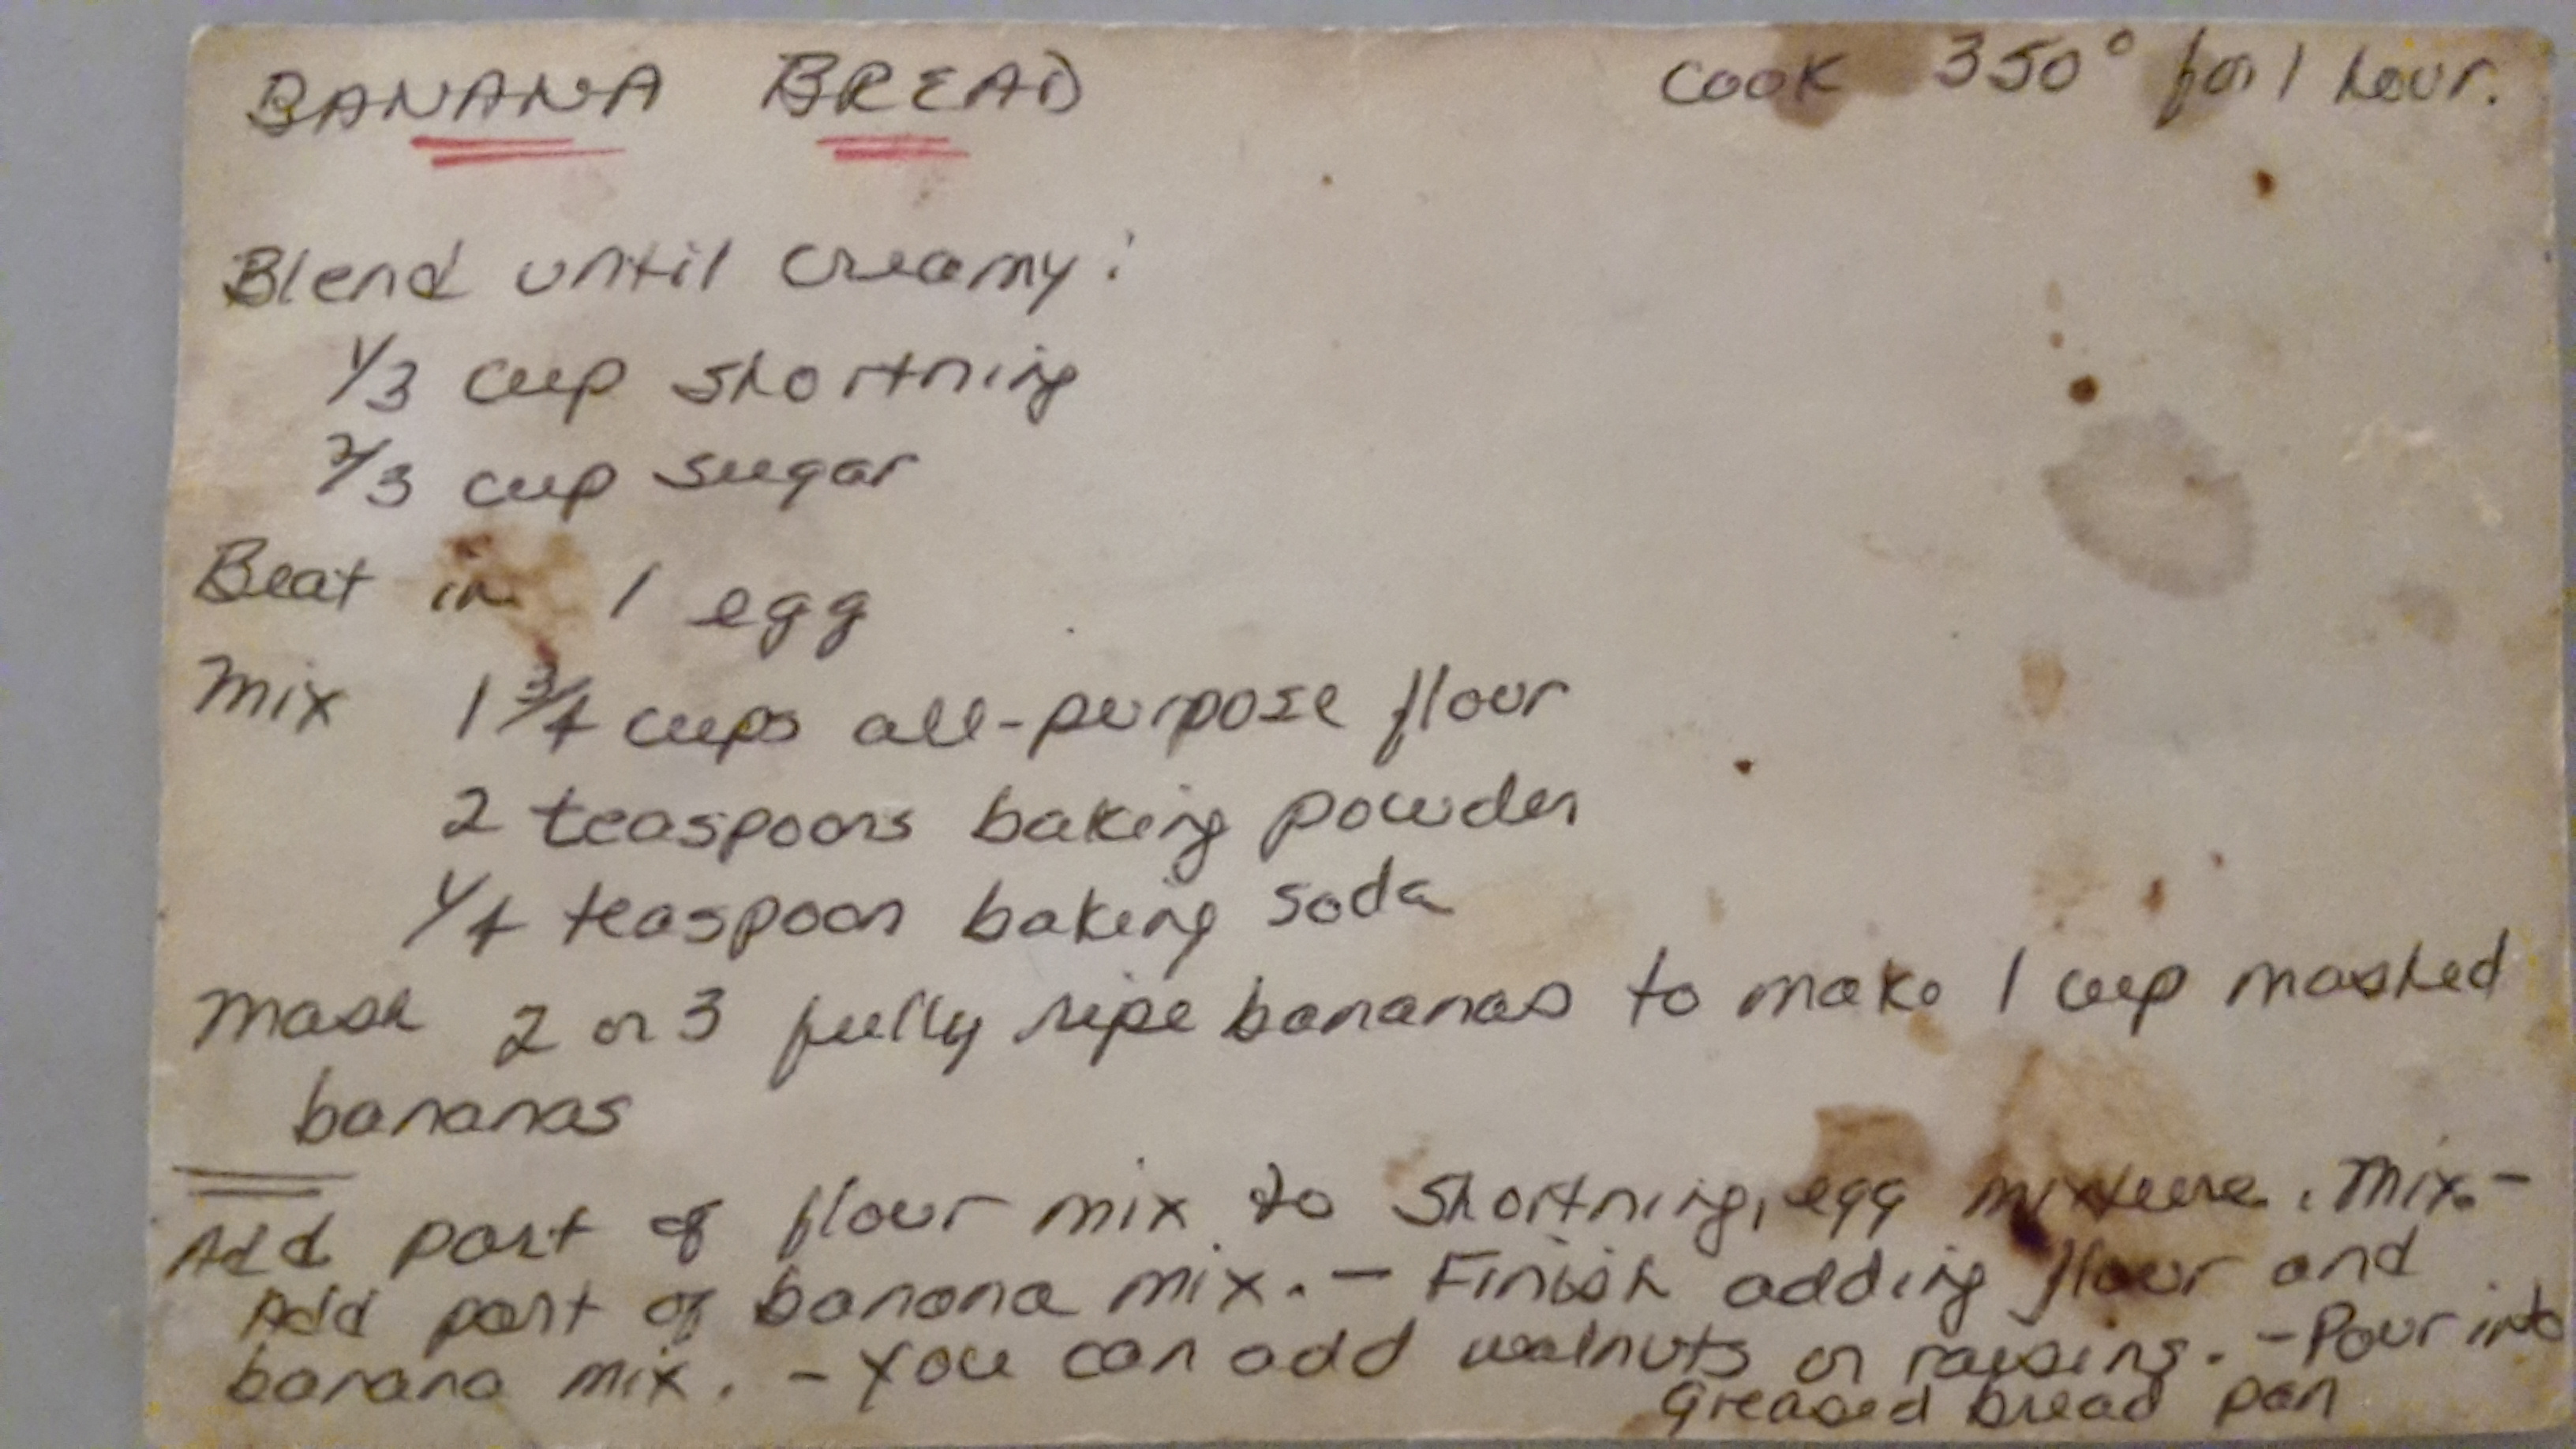 BANANA BREAD
Cook 350° for 1 hour.
Blend until creamy:
1/3 cup shortning
2/3 cup sugar
Beat in 1 egg
Mix 1 3/4 cups all-purpose flour
2 teaspoons baking powder
1/4 teaspoon baking soda
Mash 2 or 3 fully ripe bananas to make 1 cup mashed
bananas
Add part of flour mix to Shortning, egg mixture. Mix. -
Add part of banana mix. - Finish adding flour and
banana mix. - You can add walnuts or raisins. - Pour into
greased bread pan